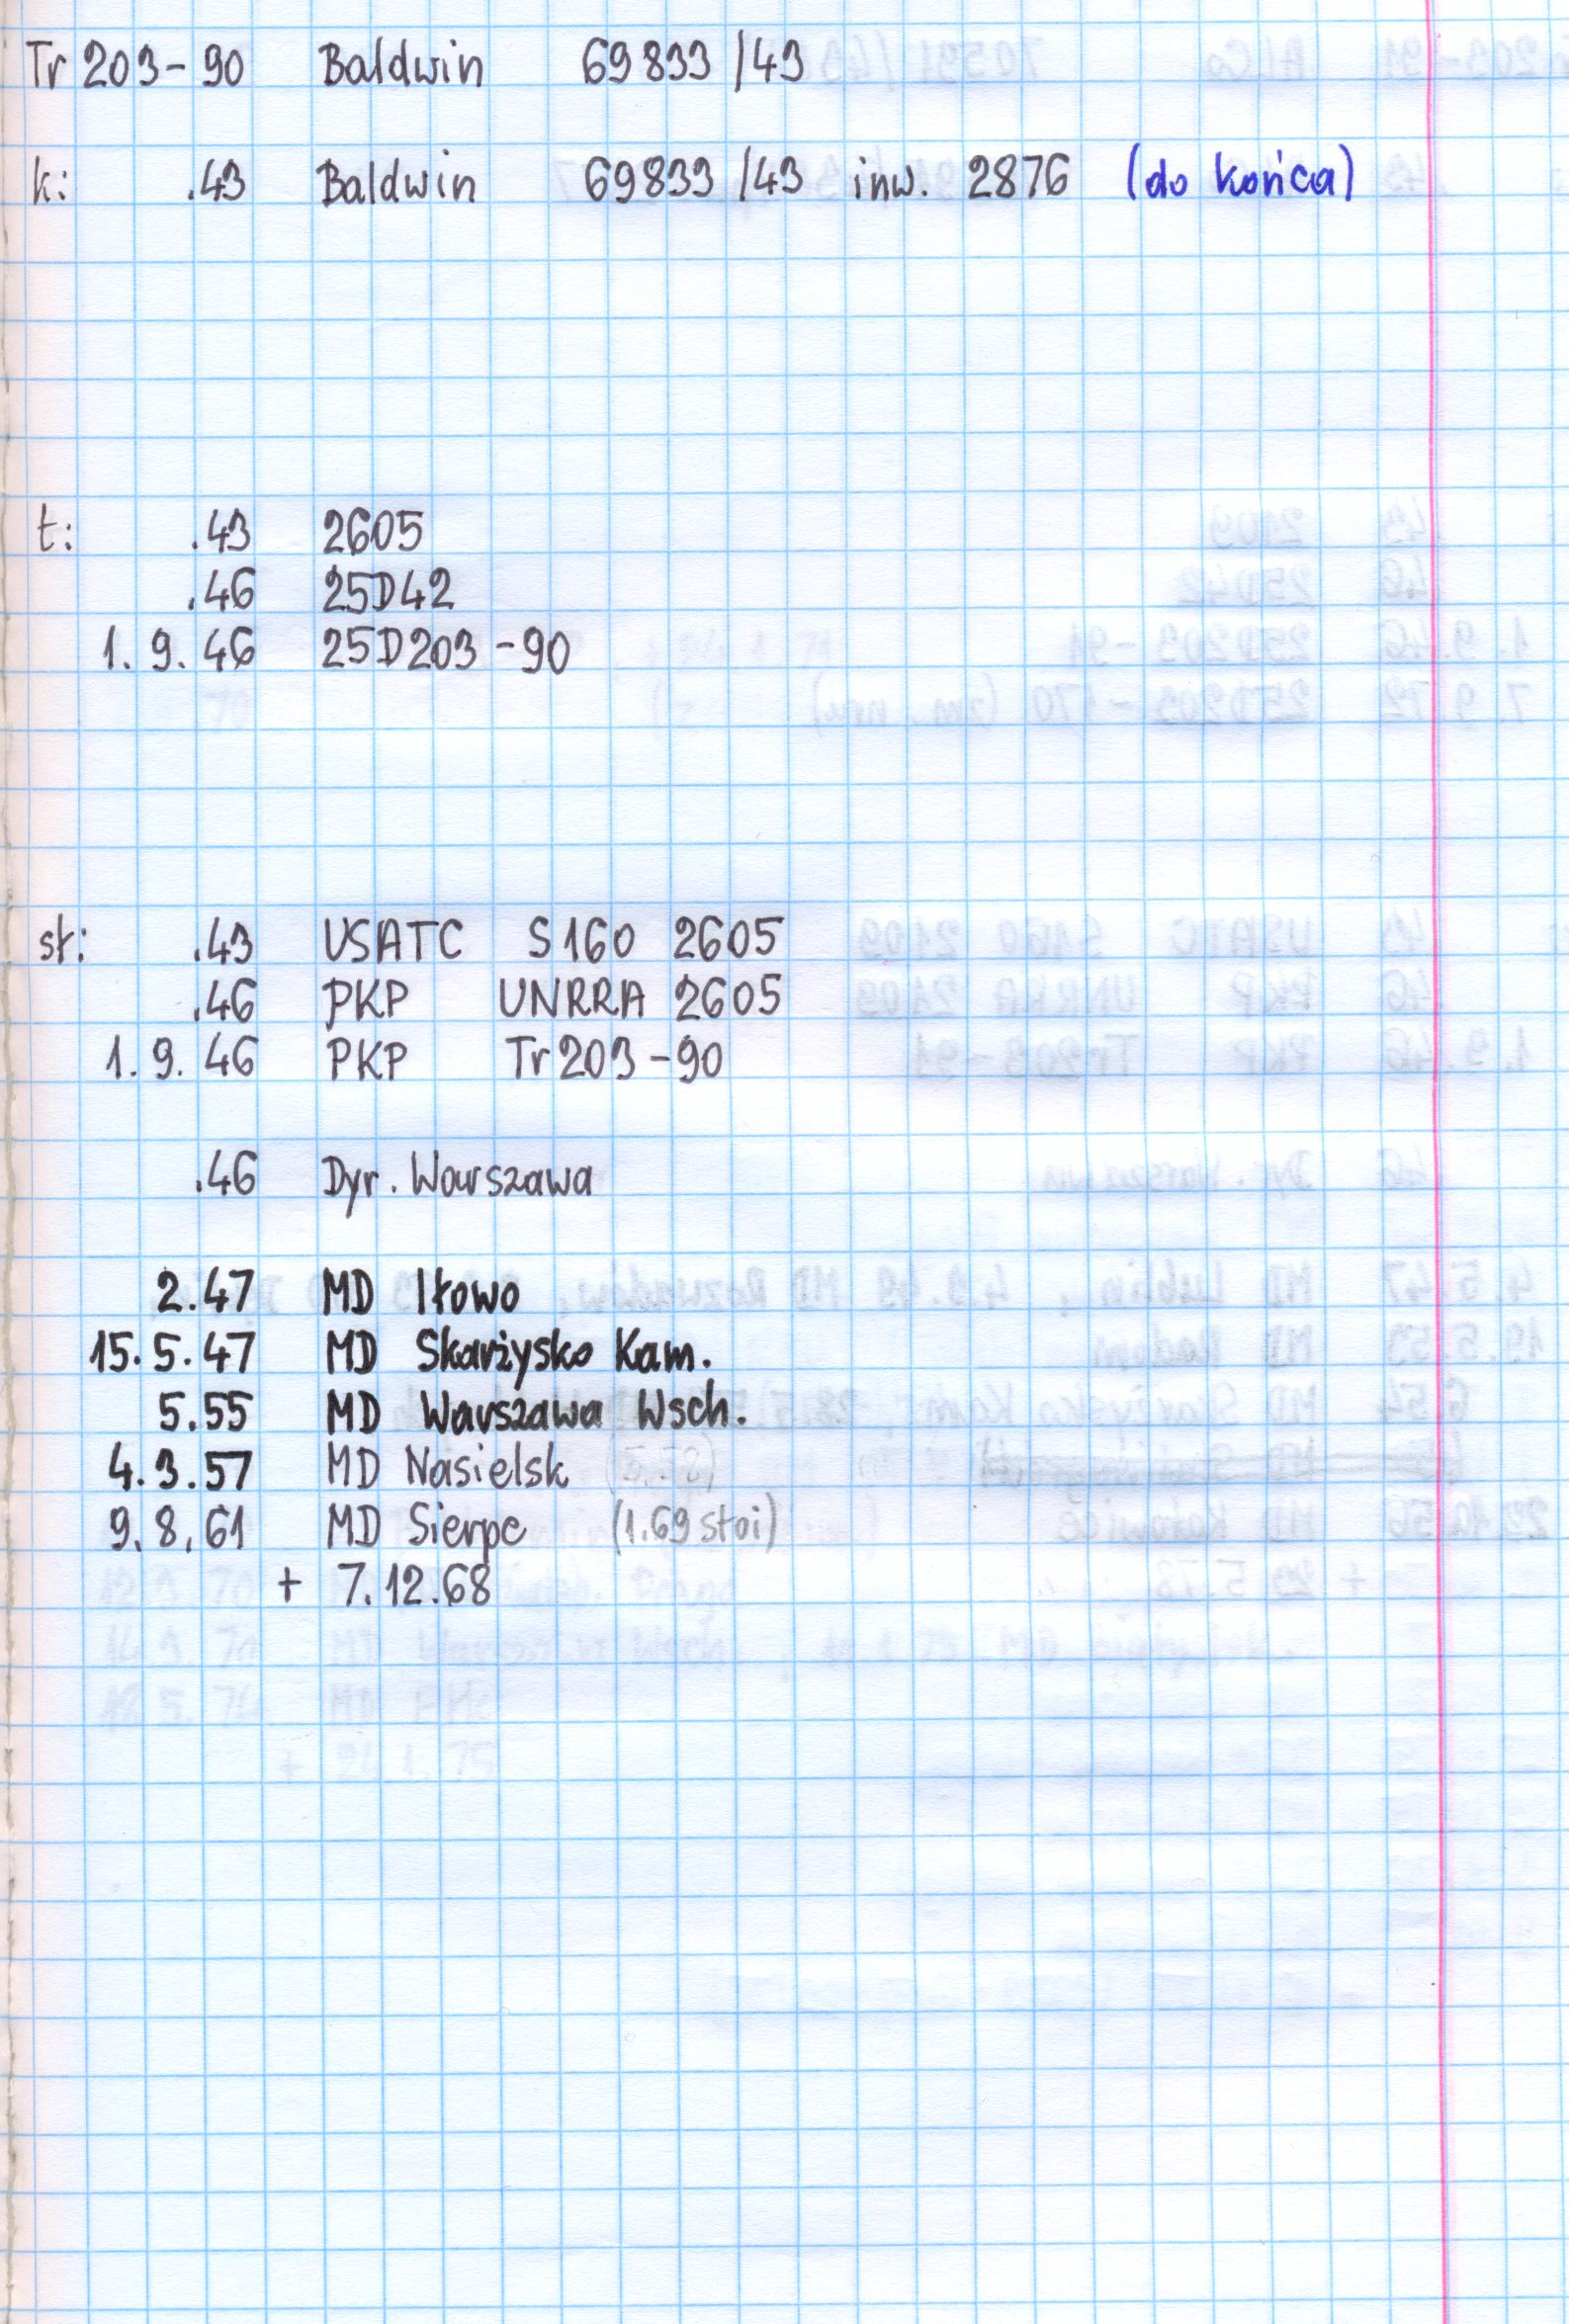 Tr 203-90 Baldwin 69833/43
k: .43 Baldwin 69833/43 inw. 2876 (do końca)
t: .43 2605
.46 25D42
1.9.46 25D203-90
sł: .43 USATC S160 2605
.46 PKP UNRRA 2605
1.9.46 PKP Tr203-90
.46 Dyr. Warszawa
2.47 MD Iłowo
15.5.47 MD Skarżysko Kam.
5.55 MD Warszawa Wsch.
4.3.57 MD Nasielsk
9.8.61 MD Sierpc (1.69 stoi)
+ 7.12.68